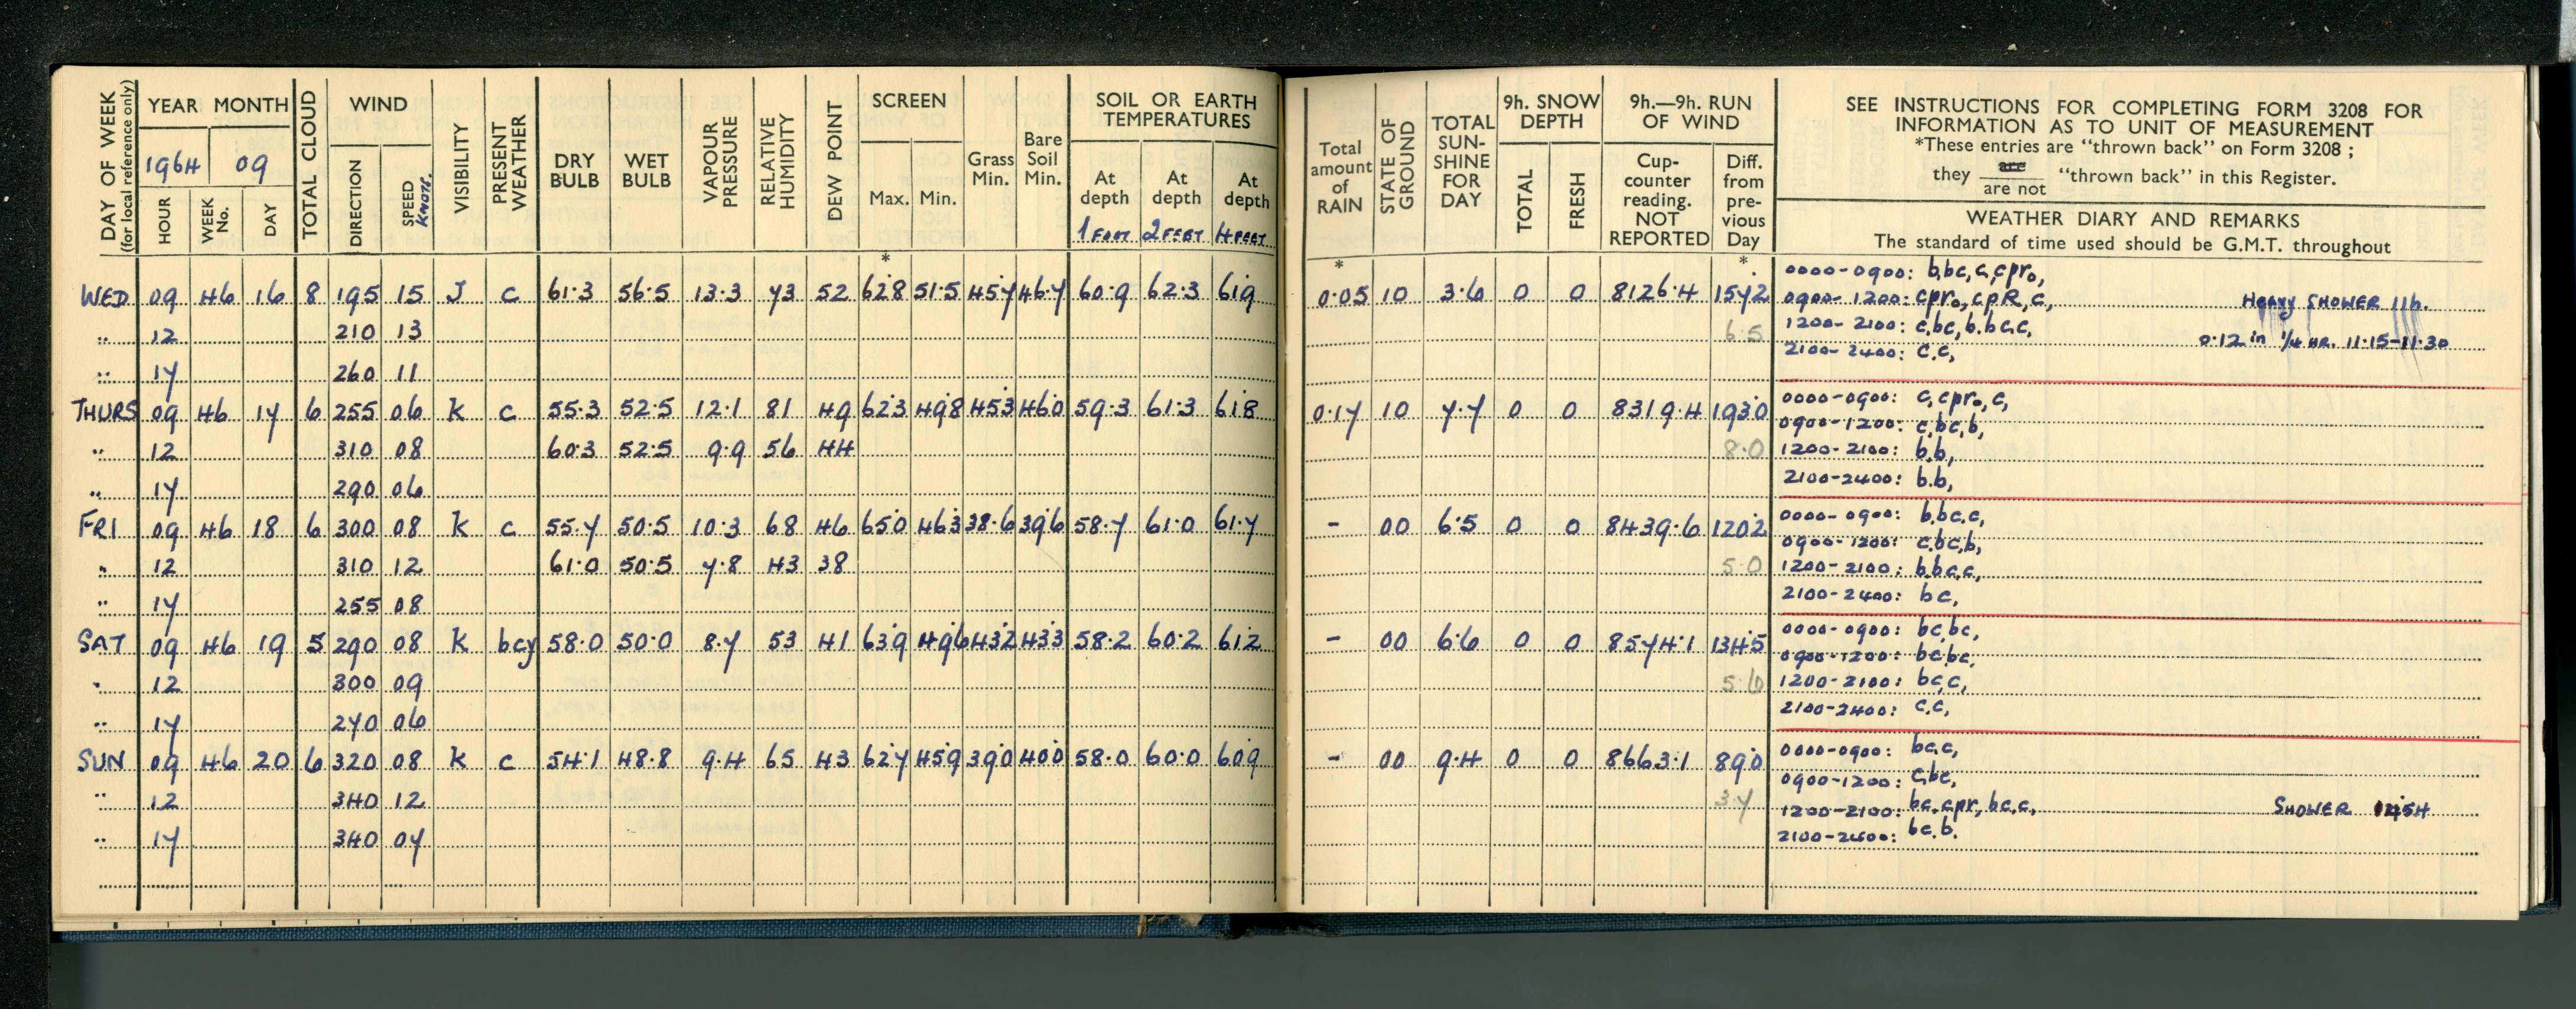 DAY OF WEEK (for local reference only)
YEAR MONTH
1964 09
HOUR WEEK No. DAY
TOTAL CLOUD
WIND
DIRECTION SPEED KNOTS.
VISIBILITY
PRESENT WEATHER
DRY BULB
WET BULB
VAPOUR PRESSURE
RELATIVE HUMIDITY
DEW POINT
SCREEN
Max. Min.
*
Grass Min.
Bare Soil Min.
SOIL OR EARTH TEMPERATURES
At depth At depth At depth
1 FOOT 2 FEET 4 FEET
WED 09 46 16 8 195 15 J c 61.3 56.5 13.3 73 52 62.8 51.5 45.7 46.7 60.9 62.3 61.9
" 12 210 13
" 17 260 11
THURS 09 46 17 6 255 06 K c 55.3 52.5 12.1 81 49 62.3 49.8 45.3 46.0 59.3 61.3 61.8
" 12 310 08 60.3 52.5 9.9 56 44
" 17 290 06
FRI 09 46 18 6 300 08 K c 55.7 50.5 10.3 68 46 65.0 46.3 38.6 39.6 58.7 61.0 61.7
" 12 310 12 61.0 50.5 7.8 43 38
" 17 255 08
SAT 09 46 19 5 290 08 K bcy 58.0 50.0 8.7 53 41 63.9 49.6 43.2 43.3 58.2 60.2 61.2
" 12 300 09
" 17 270 06
SUN 09 46 20 6 320 08 K c 54.1 48.8 9.4 65 43 62.7 45.9 39.0 40.0 58.0 60.0 60.9
" 12 340 12
" 17 340 07
Total amount of RAIN
*
STATE OF GROUND
TOTAL SUN-SHINE FOR DAY
9h. SNOW DEPTH
TOTAL FRESH
9h.—9h. RUN OF WIND
Cup-counter reading. NOT REPORTED
Diff. from pre-vious Day
*
SEE INSTRUCTIONS FOR COMPLETING FORM 3208 FOR
INFORMATION AS TO UNIT OF MEASUREMENT
*These entries are "thrown back" on Form 3208 ;
they are / are not "thrown back" in this Register.
WEATHER DIARY AND REMARKS
The standard of time used should be G.M.T. throughout
0.05 10 3.6 0 0 8126.4 157.2
6.5
0000-0900: b,bc,c,cpr₀,
0900-1200: cpr₀,cpR,c, HEAVY SHOWER 11h.
1200-2100: c,bc,b,bc,c, 0.12 in ¼ HR. 11.15-11.30
2100-2400: c,c,
0.17 10 7.7 0 0 8319.4 193.0
8.0
0000-0900: c,cpr₀,c,
0900-1200: c,bc,b,
1200-2100: b,b,
2100-2400: b,b,
- 00 6.5 0 0 8439.6 120.2
5.0
0000-0900: b,bc,c,
0900-1200: c,bc,b,
1200-2100: b,bc,c,
2100-2400: bc,
- 00 6.6 0 0 8574.1 134.5
5.6
0000-0900: bc,bc,
0900-1200: bc,bc,
1200-2100: bc,c,
2100-2400: c,c,
- 00 9.4 0 0 8663.1 89.0
3.7
0000-0900: bc,c,
0900-1200: c,bc,
1200-2100: bc,cpr,bc,c, SHOWER
2100-2400: bc,b.